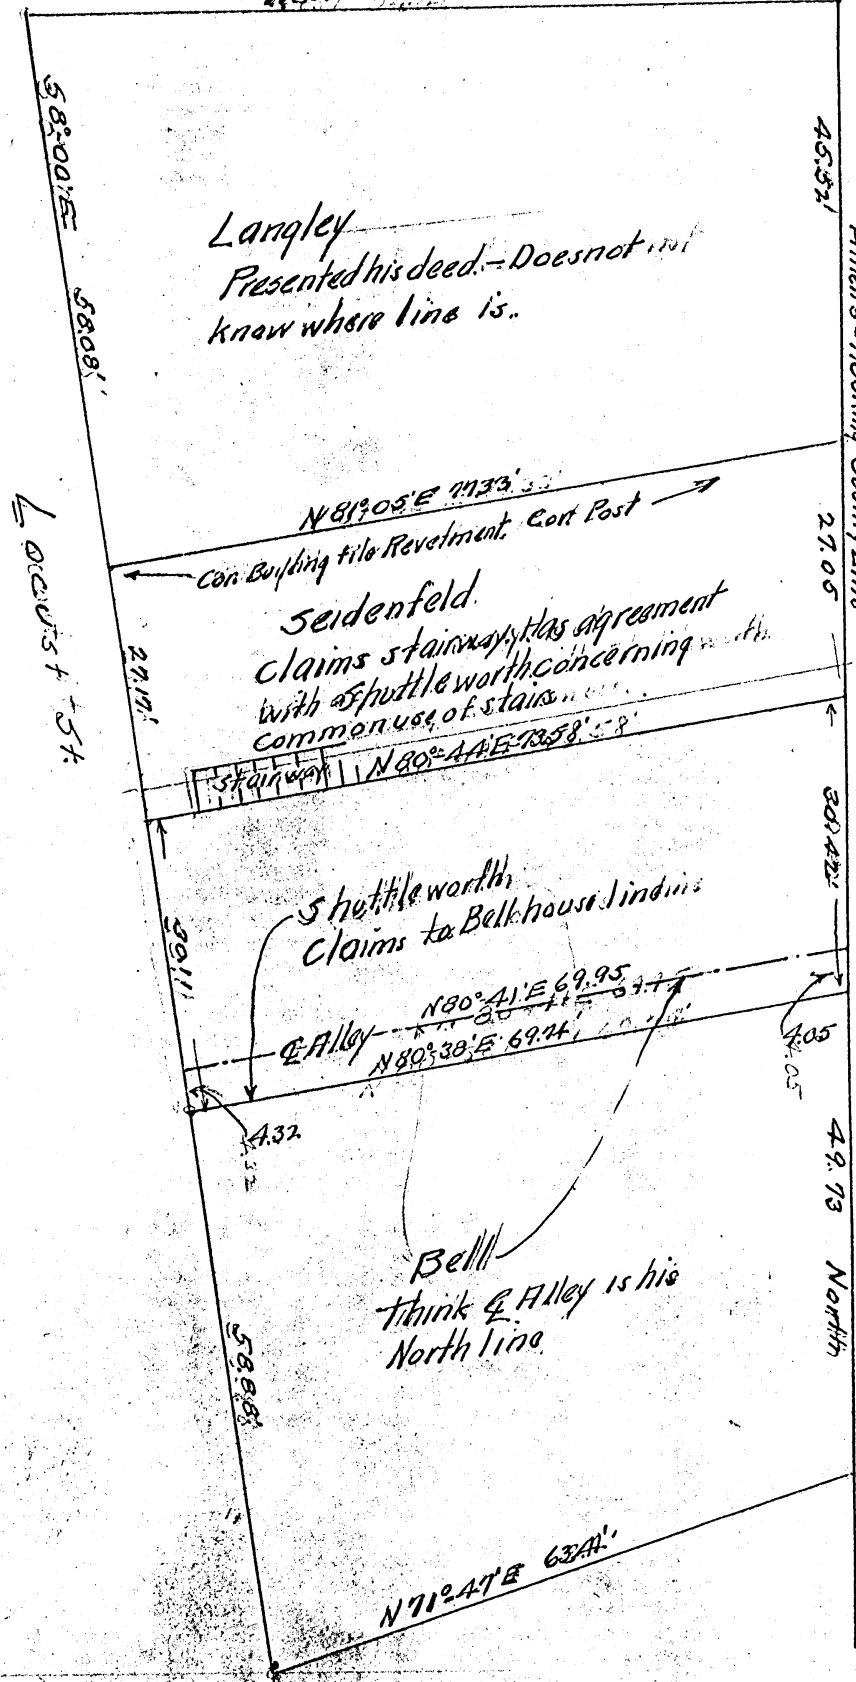 S 8°-00'E 58.08'
45.52'
Langley
Presented his deed.-Does not
know where line is..
Locust St.
County Line
N 81°-05'E 77.33'
Con Building tile Revetment. Cor Post
27.06
27.17'
Seidenfeld.
Claims stairway, Has agreement
with Shuttleworth concerning
common use of stairs
stairway
N 80°-44'E 73.58'
30.42'
30.11'
Shuttleworth
Claims to Bell house
N 80°-41'E 69.95
℄ Alley
N 80°-38'E 69.24'
4.05
4.32
49.73 North
Bell
Think ℄ Alley is his
North line
58.88'
N 71°-47'E 63.41'